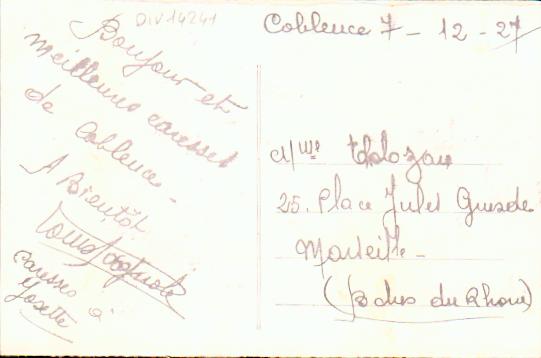 DIV14241
Bonjour et
meilleures caresses
de Coblence -
A Bientôt
caresses à
Josette
Coblence 7 - 12 - 27
Mme Tholozan
25. Place Jules Guesde
Marseille -
(Bches du Rhône)